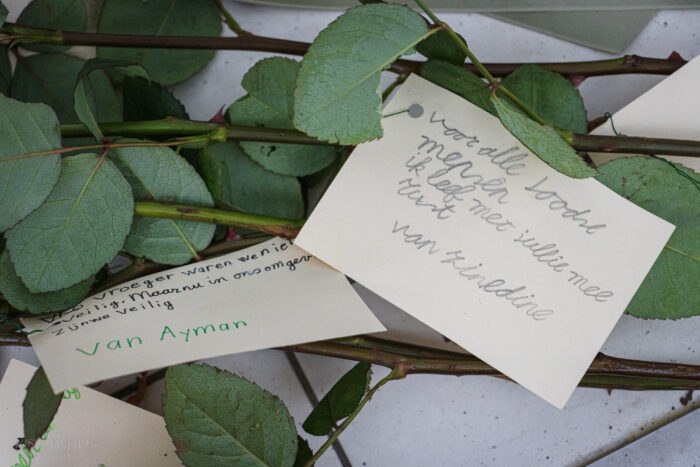 voor alle Joodse
mensen
ik leef met jullie mee
rust
van zinedine
vroeger waren we niet
veilig. Maar nu in ons omgev
zijn we veilig
van Ayman